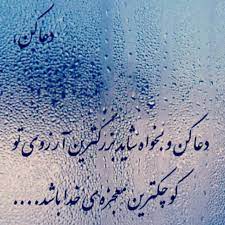 دعا کن،
دعا کن و بخواه شاید بزرگترین آرزوی تو
کوچکترین معجزه‌ی خدا باشد....